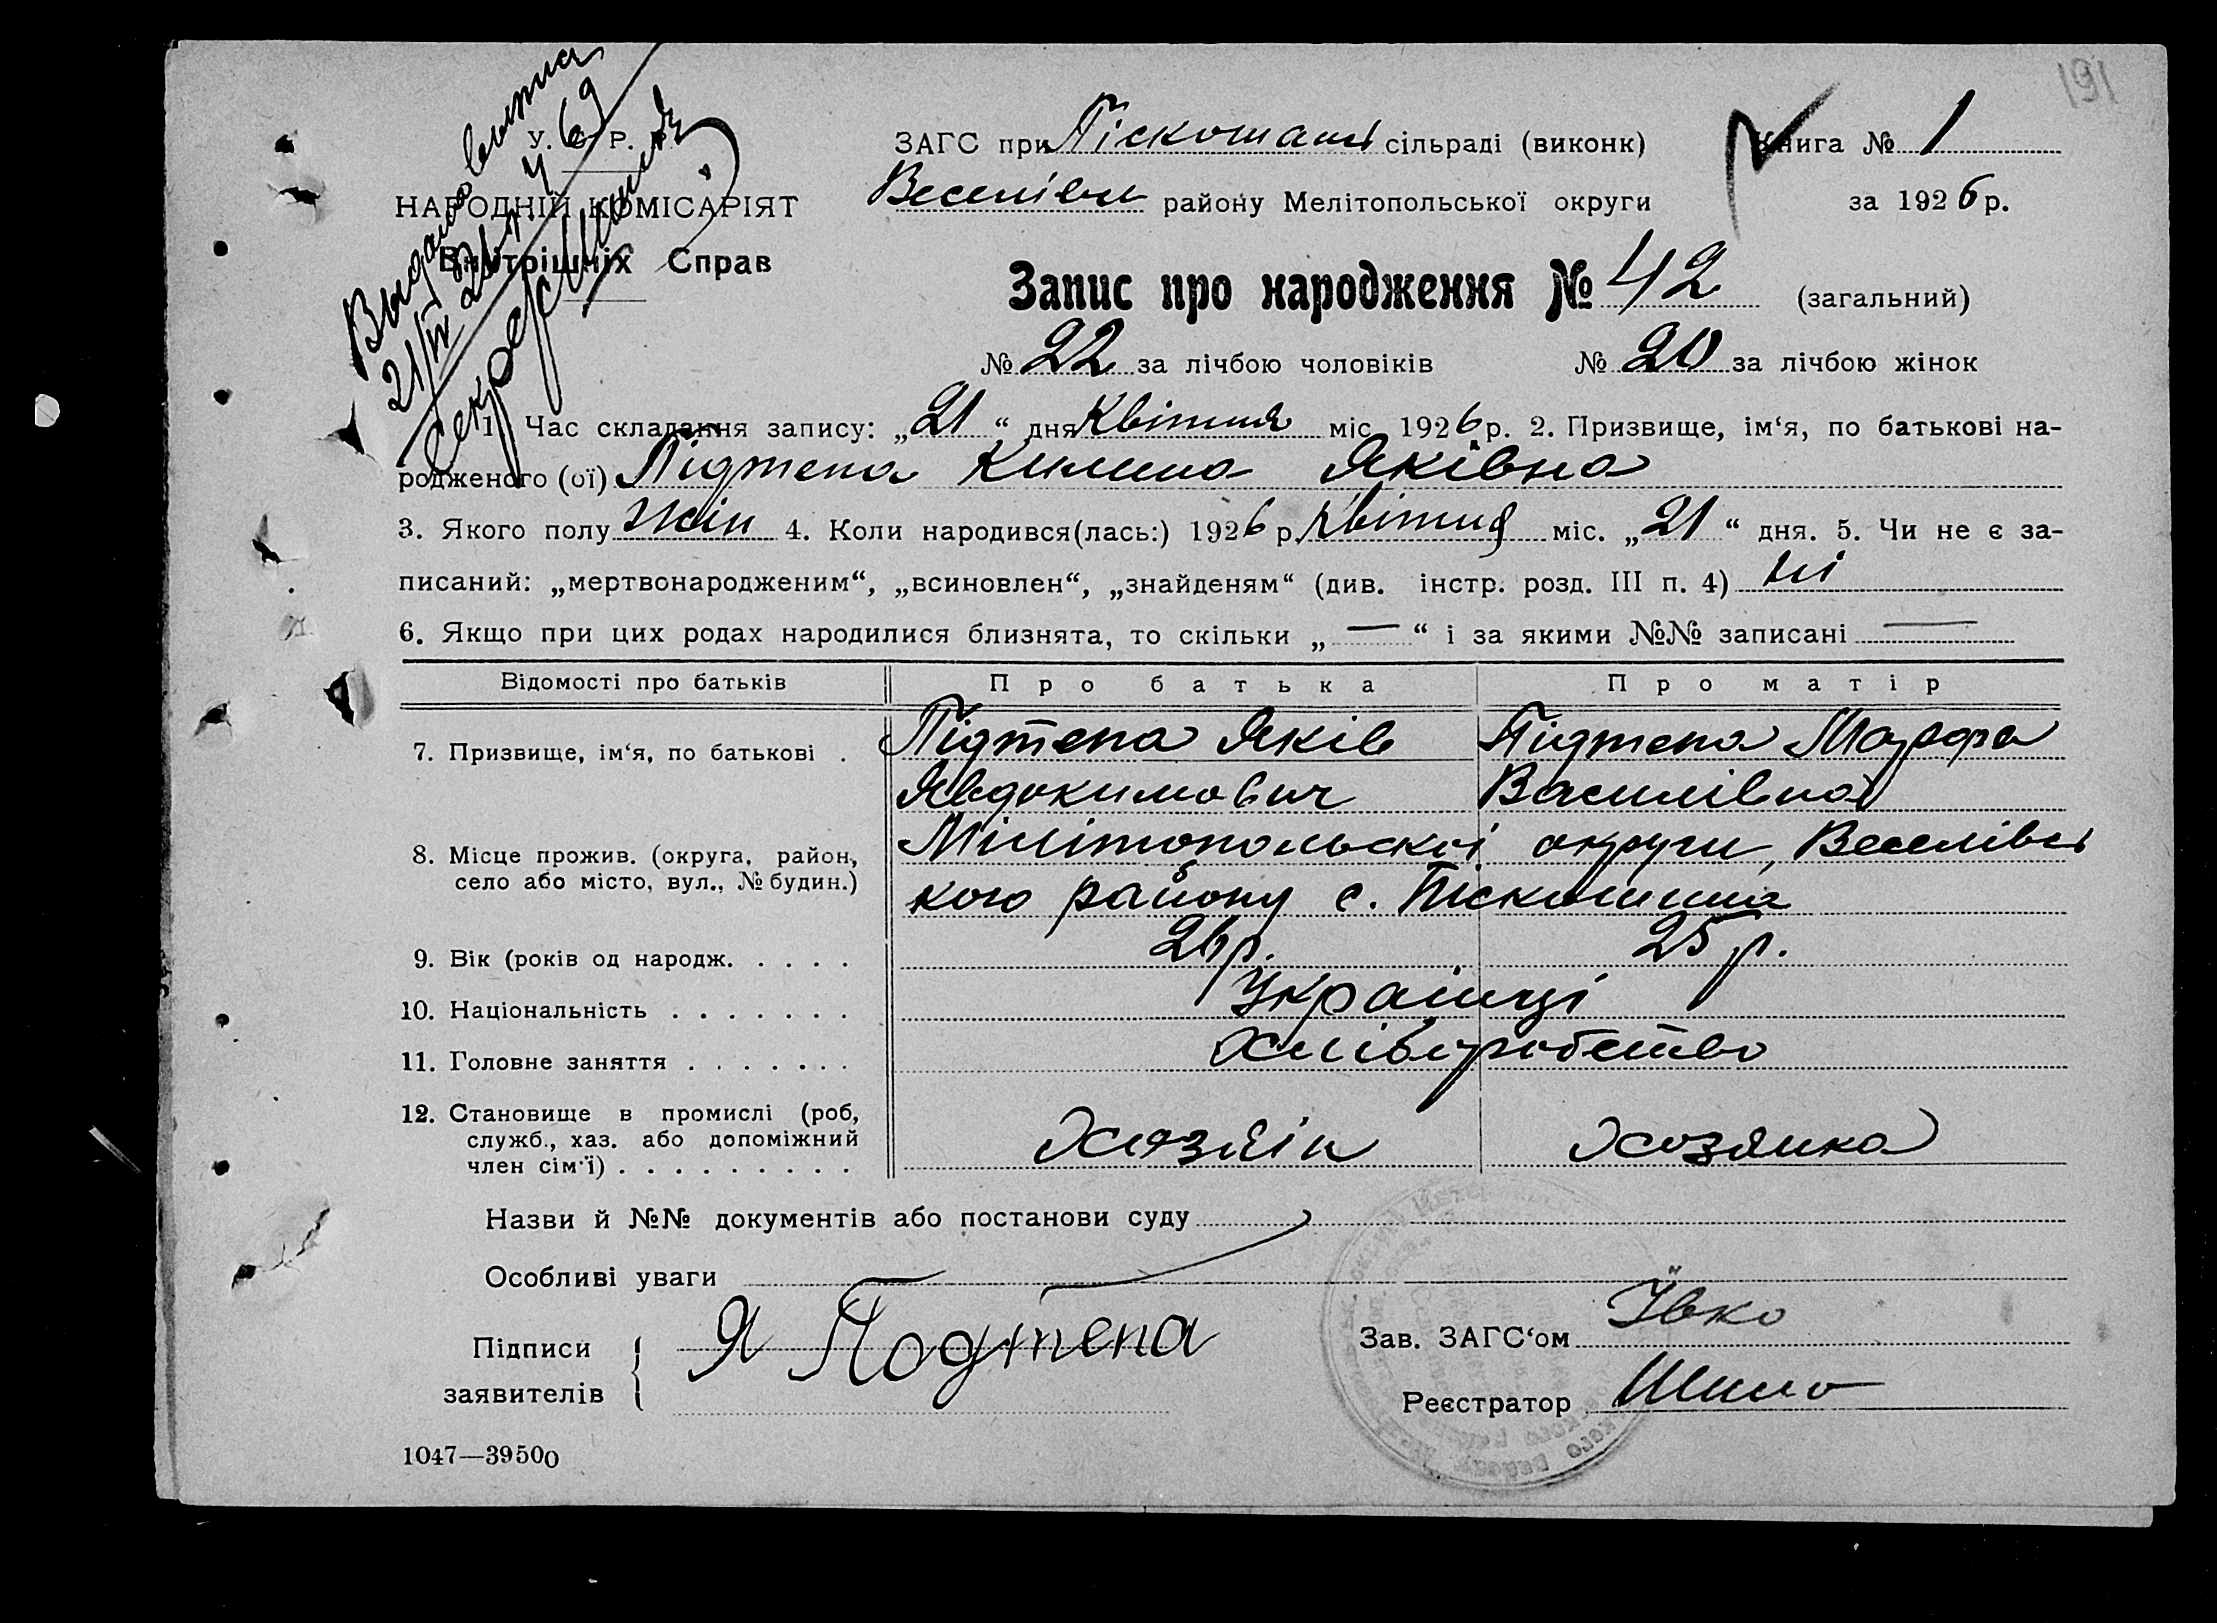 191
У. С. Р. Р.
НАРОДНІЙ КОМІСАРІЯТ
Внутрішніх Справ
ЗАГС при Піскошан сільраді (виконк) Книга № 1
Веселівськ району Мелітопольської округи за 1926 р.
Запис про народження № 42 (загальний)
№ 22 за лічбою чоловіків № 20 за лічбою жінок
1. Час складання запису: „21“ дня Квітня міс. 1926 р. 2. Призвище, ім‘я, по батькові на-
родженого (ої) Підтепа Килина Яківна
3. Якого полу жін 4. Коли народився(лась:) 1926 р. Квітня міс. „21“ дня. 5. Чи не є за-
писаний: „мертвонародженим“, „всиновлен“, „знайденям“ (див. інстр. розд. III п. 4) ні
6. Якщо при цих родах народилися близнята, то скільки „—“ і за якими №№ записані —
Відомості про батьків Про батька Про матір
7. Призвище, ім‘я, по батькові . Підтепа Яків Підтепа Мазфа
Явдокимович Василівна
8. Місце прожив. (округа, район, село або місто, вул., № будин.) Мілітопольскої округи, Веселівсь
кого району с. Піскошина
9. Вік (років од народж. . . . . 26 р. 25 р.
10. Національність . . . . . . . Українці
11. Головне заняття . . . . . . . Хліборобство
12. Становище в промислі (роб, служб., хаз. або допоміжний член сім‘ї) . . . . . . . . . Хозяїн Хозяйка
Назви й №№ документів або постанови суду
Особливі уваги
Підписи заявителів { Я Подтепа
Зав. ЗАГС‘ом Івко
Реєстратор Шило
1047—39500